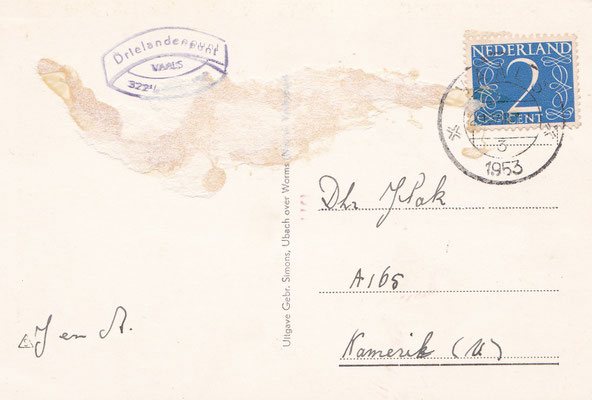 Drielandenpunt
VAALS
NEDERLAND
2
CENT
3
1953
Uitgave Gebr. Simons, Ubach over Worms
Dhr J Pak
A165
Kamerik (U)
J en A.